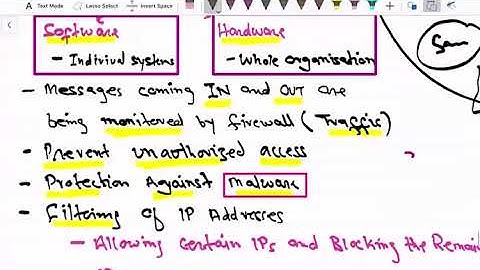 Text Mode Lasso Select Insert Space
Software Hardware
- Indiviual systems - Whole organisation
Sam
- Messages coming IN and OUT are
being monitored by firewall (Traffic)
- Prevent unauthorized access
- Protection Against Malware
- Filtering of IP Addresses
- Allowing Certain IPs and Blocking the Remain